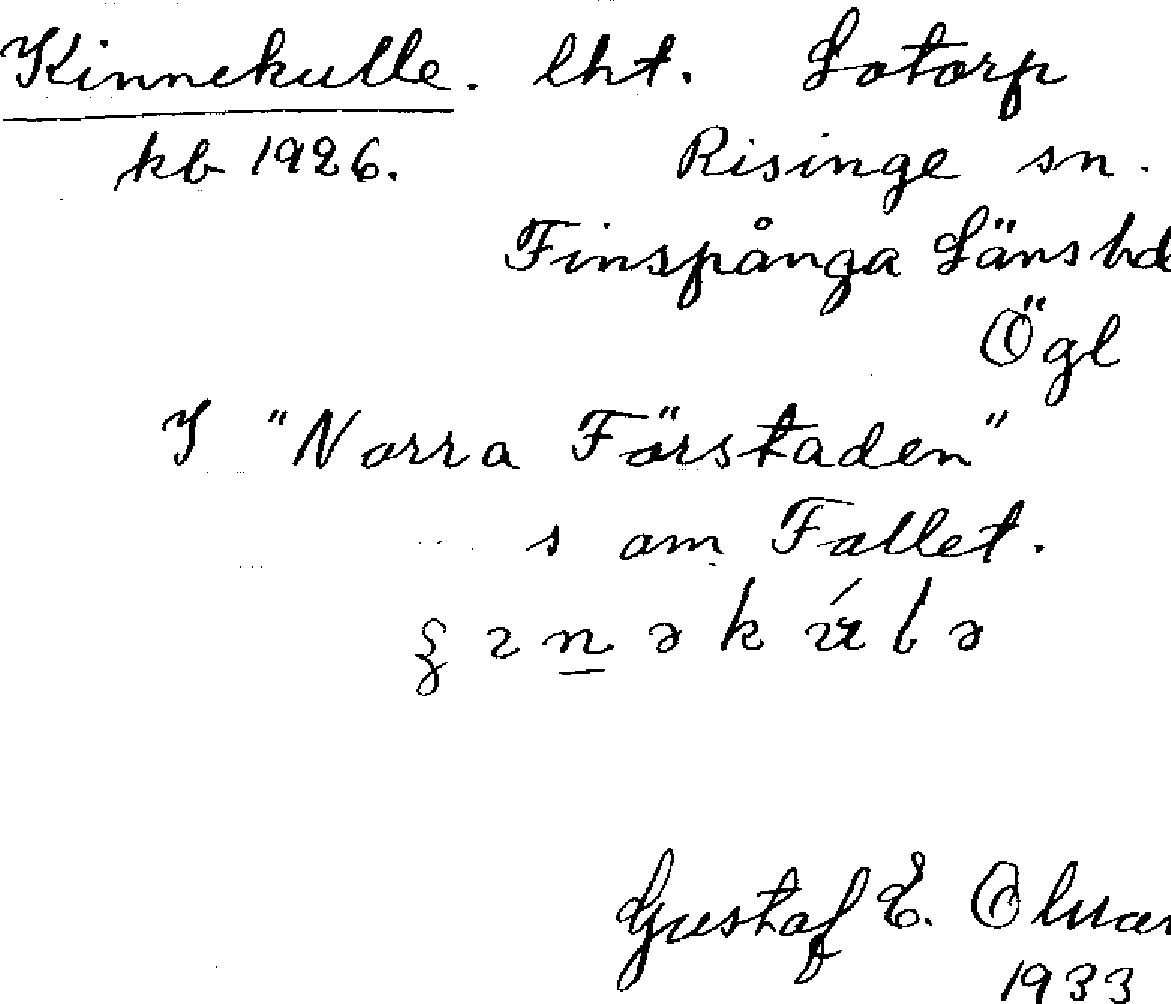 Kinnekulle. lht. Lotorp
kb 1926. Risinge sn.
Finspånga Läns hd
Ögl
I "Norra Förstaden"
s om Fallet.
Gustaf E.
1933